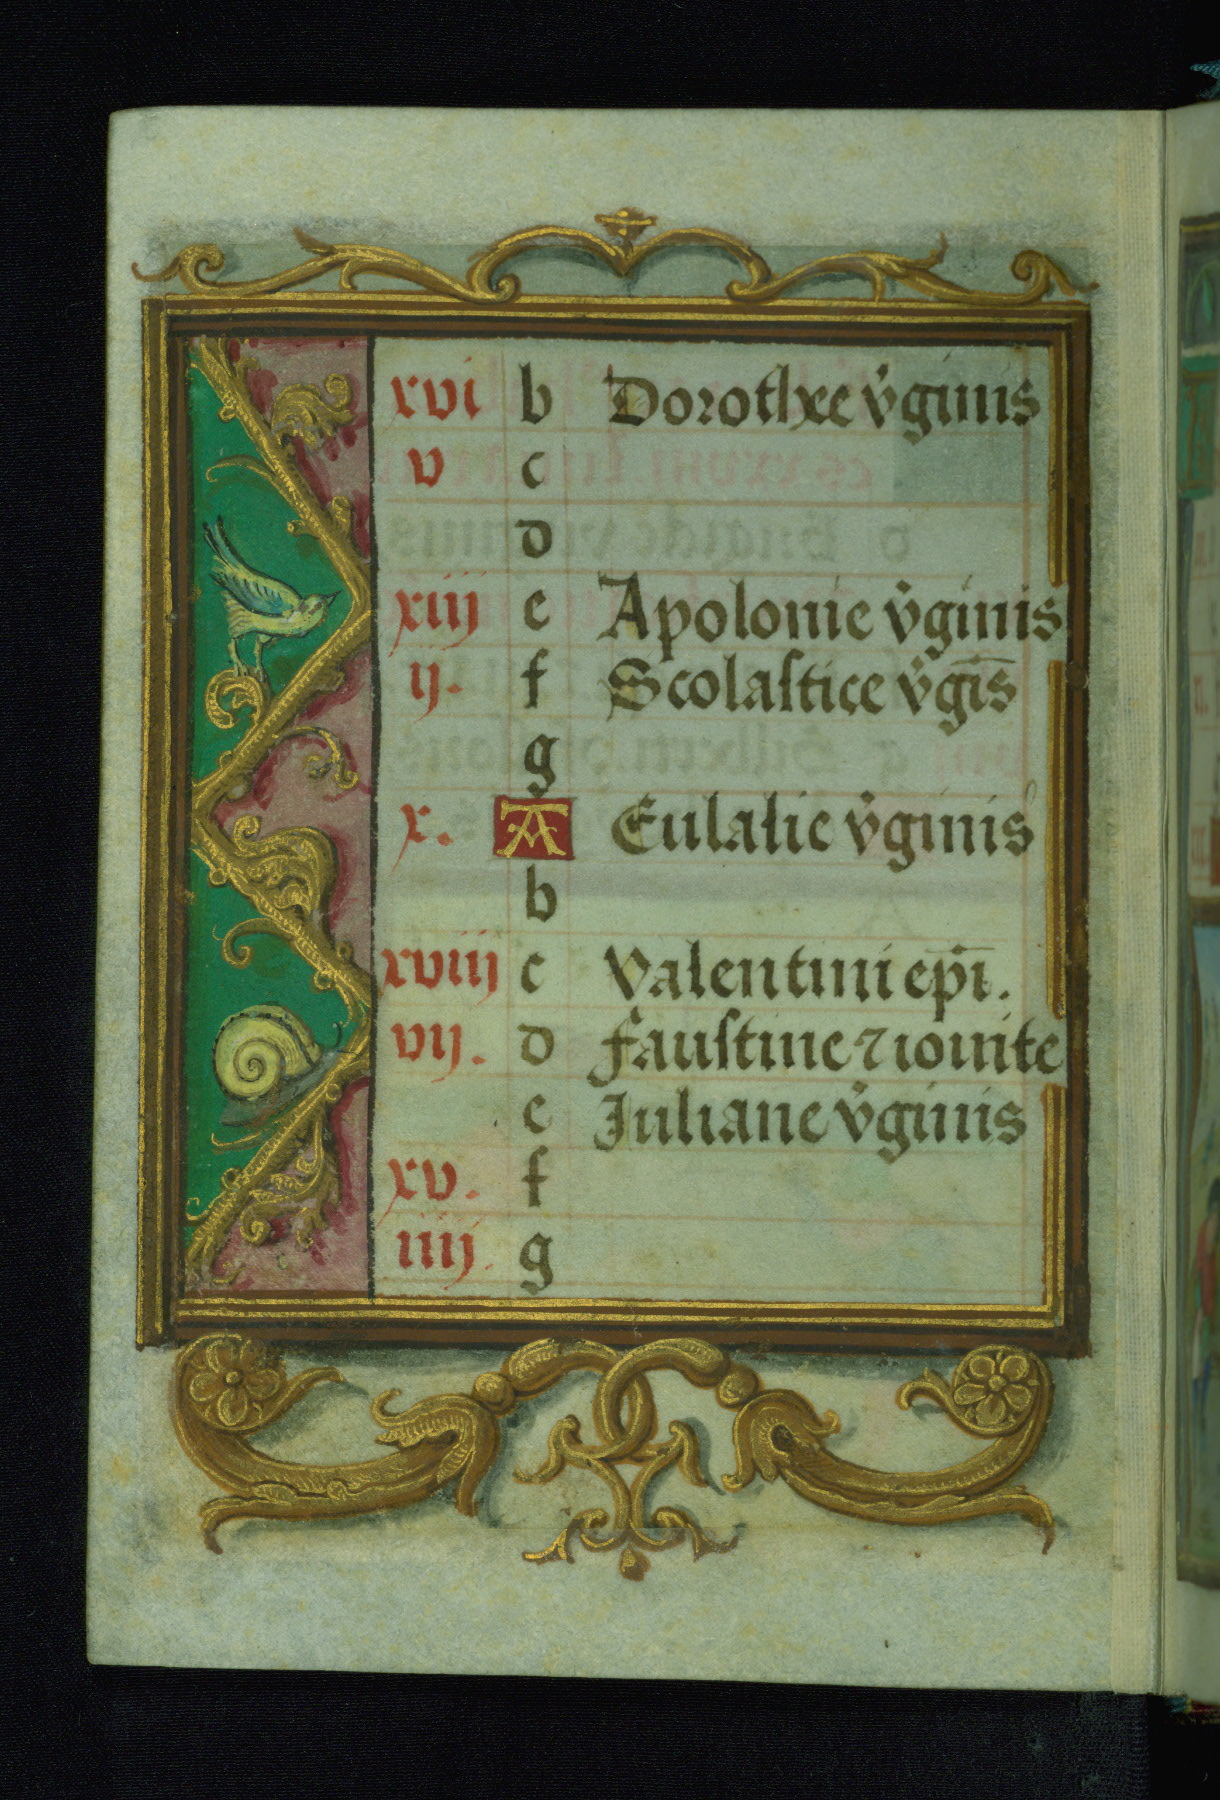 xvi b Dorothee v̉ginis
v c
d
xiij e Apolonie v̉ginis
ij. f Scolastice v̉gīs
g
x. A Eulalie v̉ginis
b
xviij c Valentini ep̄i.
vij. d Faustine ⁊ iouite
e Juliane v̉ginis
xv. f
iiij. g